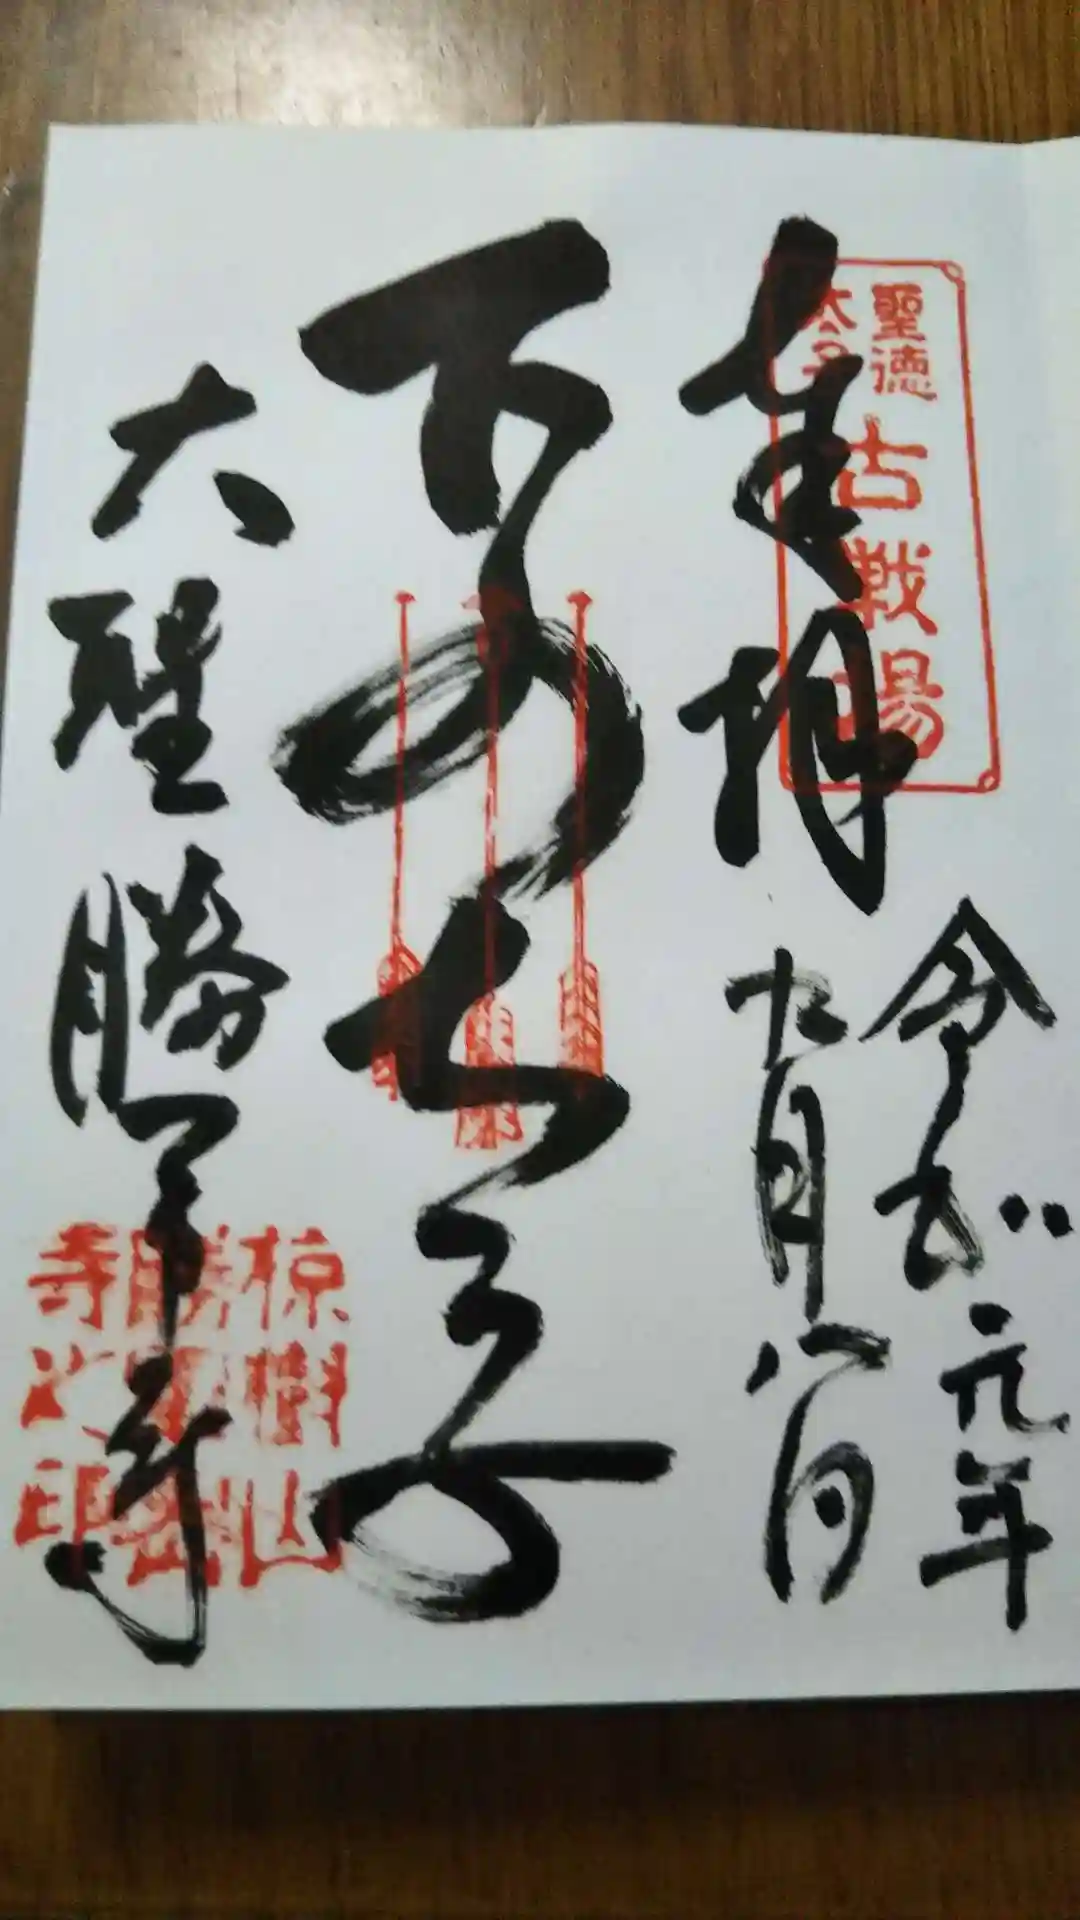 奉拝
聖徳
太子
古戦場
令和元年
九月八日
下の太子
大聖勝軍寺
椋樹山
勝軍
寺之印